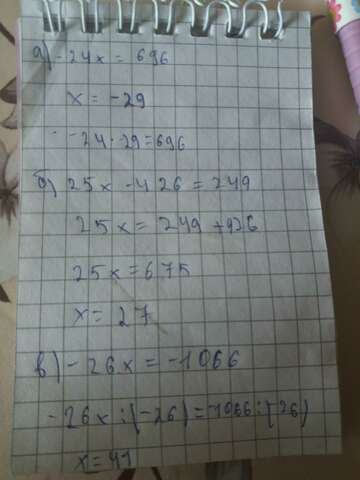 а) -24x = 696
x = -29
-24 · 29 = 696
б) 25x - 426 = 249
25x = 249 + 426
25x = 675
x = 27
в) -26x = -1066
-26x : (-26) = -1066 : (-26)
x = 41